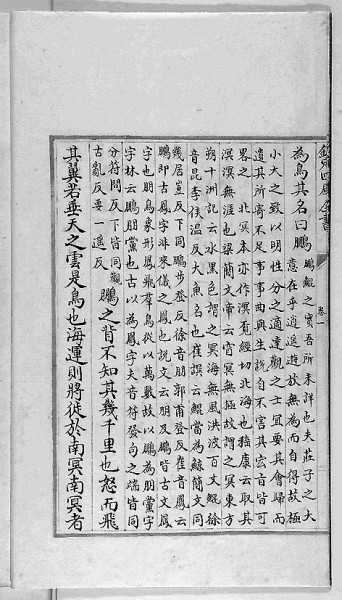 欽定四庫全書
卷一
為鳥其名曰鵬
鵬鯤之實吾所未詳也夫莊子之大
意在乎逍遙遊放無為而自得故極
小大之致以明性分之適達觀之士宜要其會歸而
遺其所寄不足事事曲與生說自不害其宏旨皆可
畧之 北冥本亦作溟覓經切北海也嵇康云取其
溟漠無涯也梁簡文帝云窅冥無極故謂之冥東方
朔十洲記云水黑色謂之冥海無風洪波百丈鯤徐
音昆李侯溫反大魚名也崔譔云鯤當為鯨簡文同
幾居豈反下同鵬步登反徐音朋郭甫登反崔音鳳云
鵬即古鳳字非來儀之鳳也說文云朋及鵬皆古文鳳
字也朋鳥象形鳳飛羣鳥從以萬數故以鵬為朋黨字
字林云鵬朋黨也古以為鳳字夫音符發句之端皆同
分符問反下皆同觀
古亂反要一遙反
鵬之背不知其幾千里也怒而飛
其翼若垂天之雲是鳥也海運則將徙於南冥南冥者